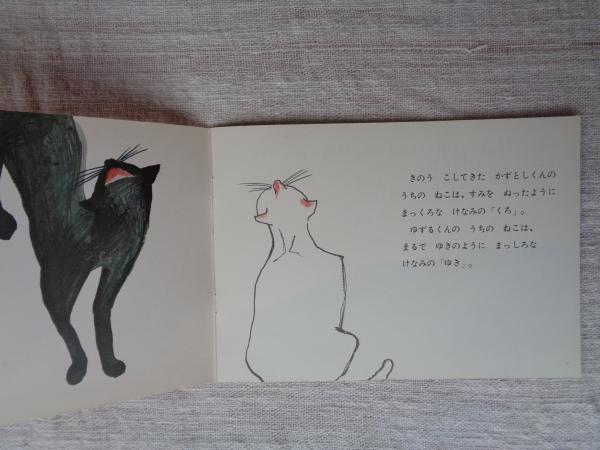 きのう　こしてきた　かずとしくんの
うちの　ねこは、すみを　ぬったように
まっくろな　けなみの「くろ」。
ゆずるくんの　うちの　ねこは、
まるで　ゆきのように　まっしろな
けなみの「ゆき」。